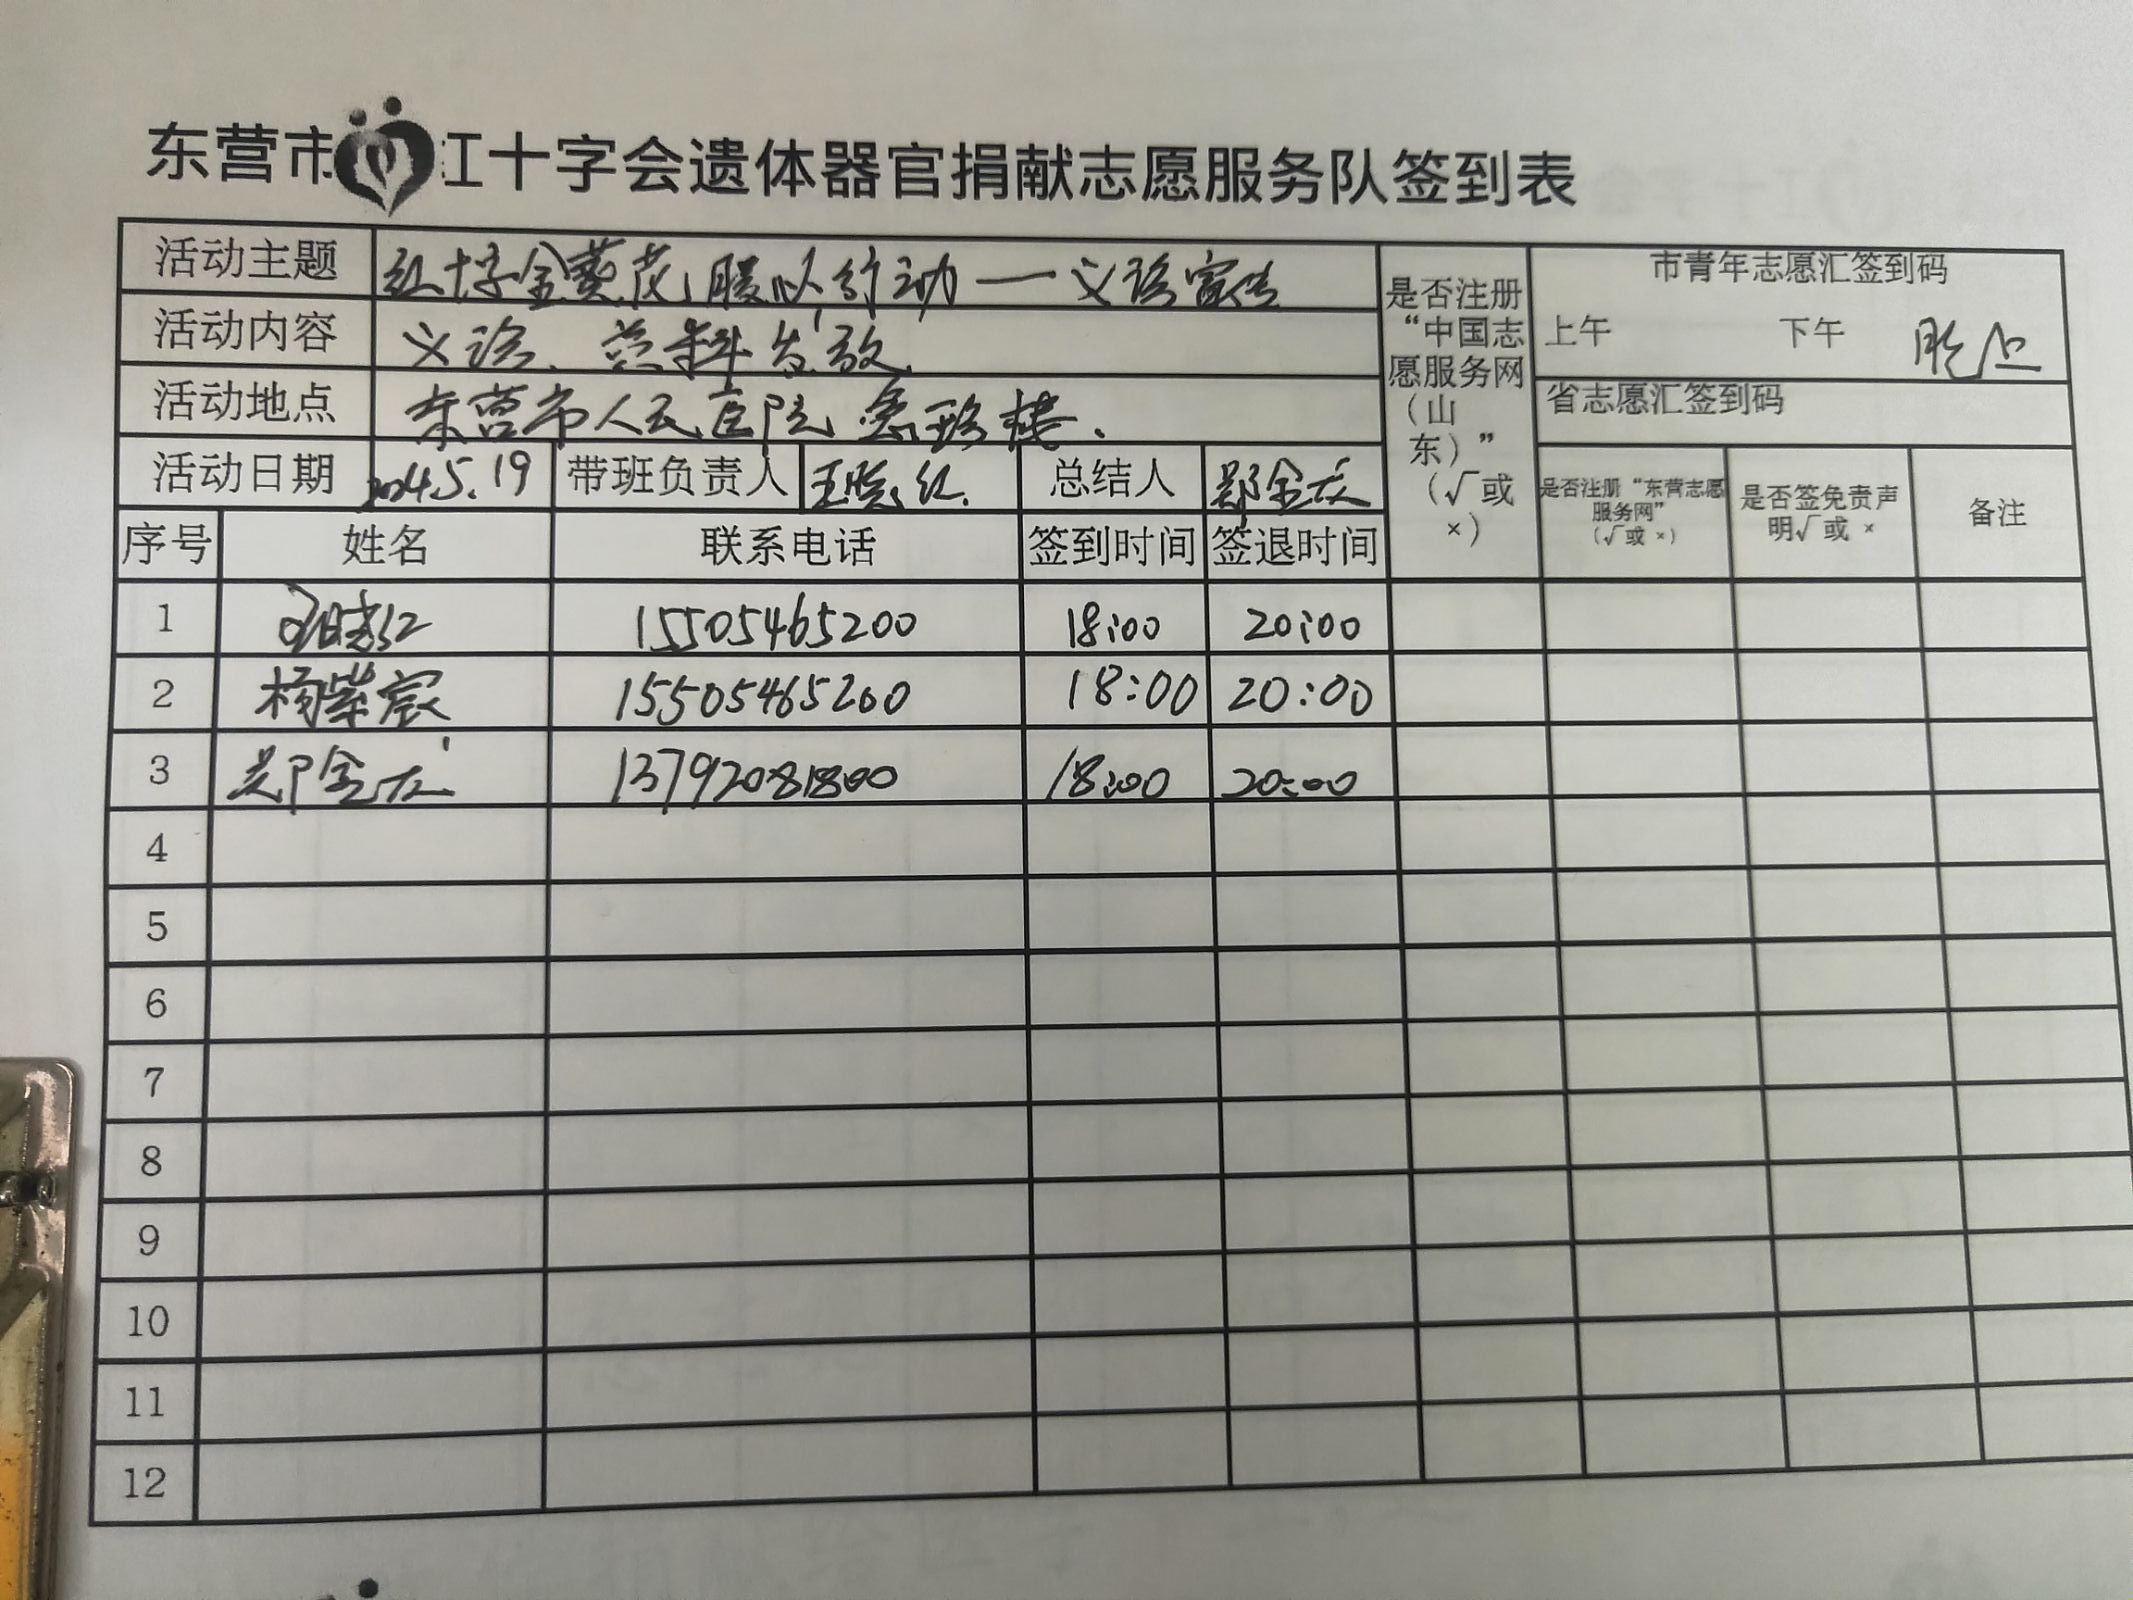 东营市红十字会遗体器官捐献志愿服务队签到表
活动主题 红十字金葵花暖心行动一义诊宣传
活动内容 义诊、资料发放
活动地点 东营市人民医院急诊楼.
活动日期 2024.5.19 带班负责人 王晓红. 总结人 郑金友
是否注册“中国志愿服务网（山东）”（√或×）
市青年志愿汇签到码
上午 下午
省志愿汇签到码
是否注册“东营志愿服务网”（√或×） 是否签免责声明√或× 备注
序号 姓名 联系电话 签到时间 签退时间
1 王晓红 15505465200 18:00 20:00
2 杨紫宸 15505465200 18:00 20:00
3 郑金友 13792081800 18:00 20:00
4
5
6
7
8
9
10
11
12